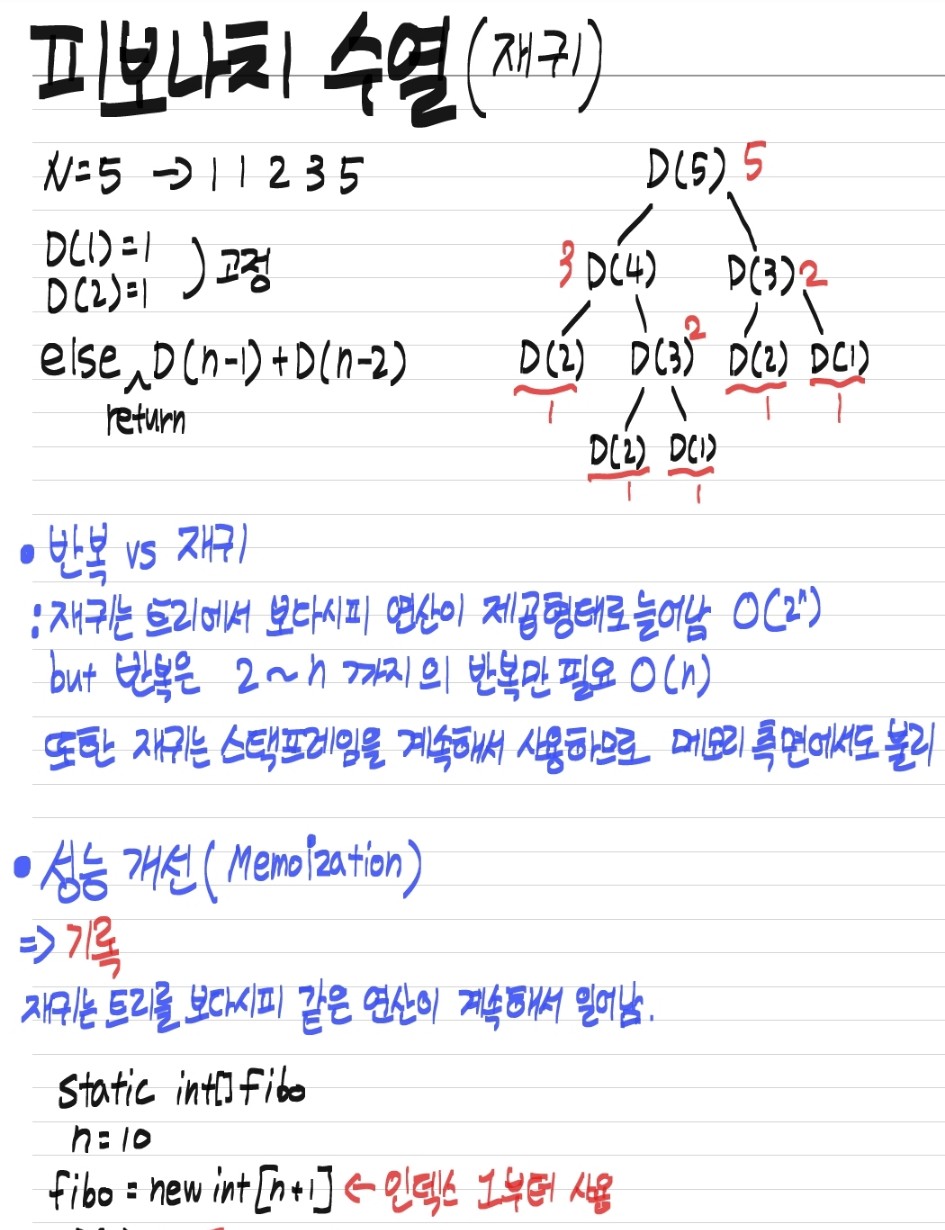 피보나치 수열(재귀)
N=5 → 1 1 2 3 5
D(1)=1
D(2)=1
) 고정
else D(n-1)+D(n-2)
return
D(5) 5
3 D(4) D(3) 2
D(2) D(3) 2 D(2) D(1)
1 1 1
D(2) D(1)
1 1
• 반복 vs 재귀
: 재귀는 트리에서 보다시피 연산이 제곱형태로 늘어남 O(2ⁿ)
but 반복은 2~n 까지의 반복만 필요 O(n)
또한 재귀는 스택프레임을 계속해서 사용하므로 메모리 측면에서도 불리
• 성능 개선(Memoization)
=> 기록
재귀는 트리를 보다시피 같은 연산이 계속해서 일어남.
static int[] fibo
n=10
fibo = new int[n+1] ← 인덱스 1부터 사용